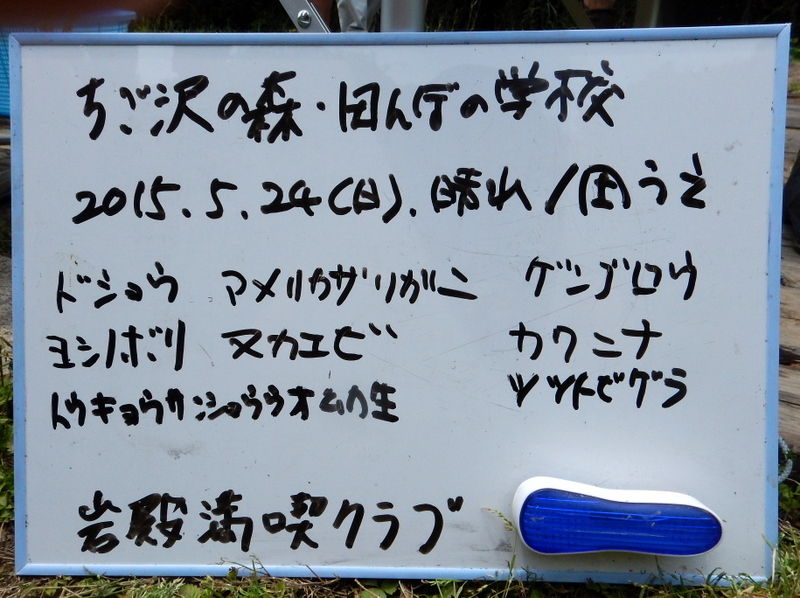 ちご沢の森・田んぼの学校
2015.5.24(日).晴れ/田うえ
ドジョウ アメリカザリガニ ゲンゴロウ
ヨシノボリ ヌカエビ カワニナ
トウキョウサンショウウオ幼生 ツツトビゲラ
岩殿満喫クラブ